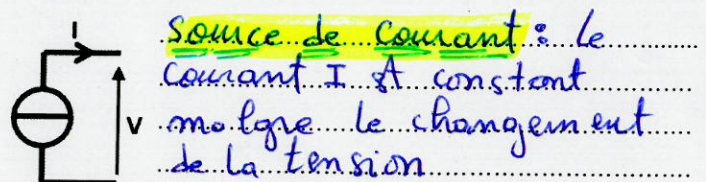 I
V
Source de Courant : le
Courant I constant
malgre le changement
de la tension